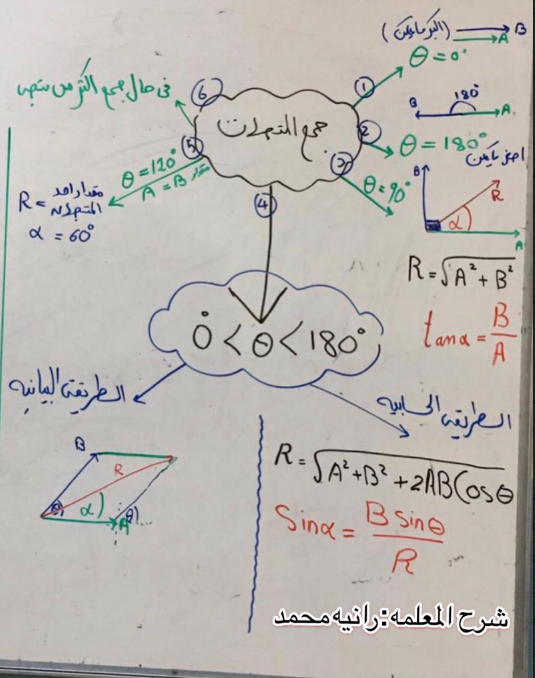 جمع المتجهات
①
(أكبر ما يمكن)
B
A
θ = 0°
②
180°
B
A
θ = 180°
أصغر ما يمكن
③
θ = 90°
B
R
α
A
R = √A² + B²
tan α = B/A
④
0° < θ < 180°
⑤
θ = 120°
A = B مقدار
R = مقدار احد المتجهات
α = 60°
⑥
في حال جمع اكثر من متجه
الطريقة البيانية
B
R
θ
α
A
θ
الطريقة الحسابية
R = √A² + B² + 2AB Cosθ
Sinα = B sinθ / R
شرح المعلمه:رانيه محمد